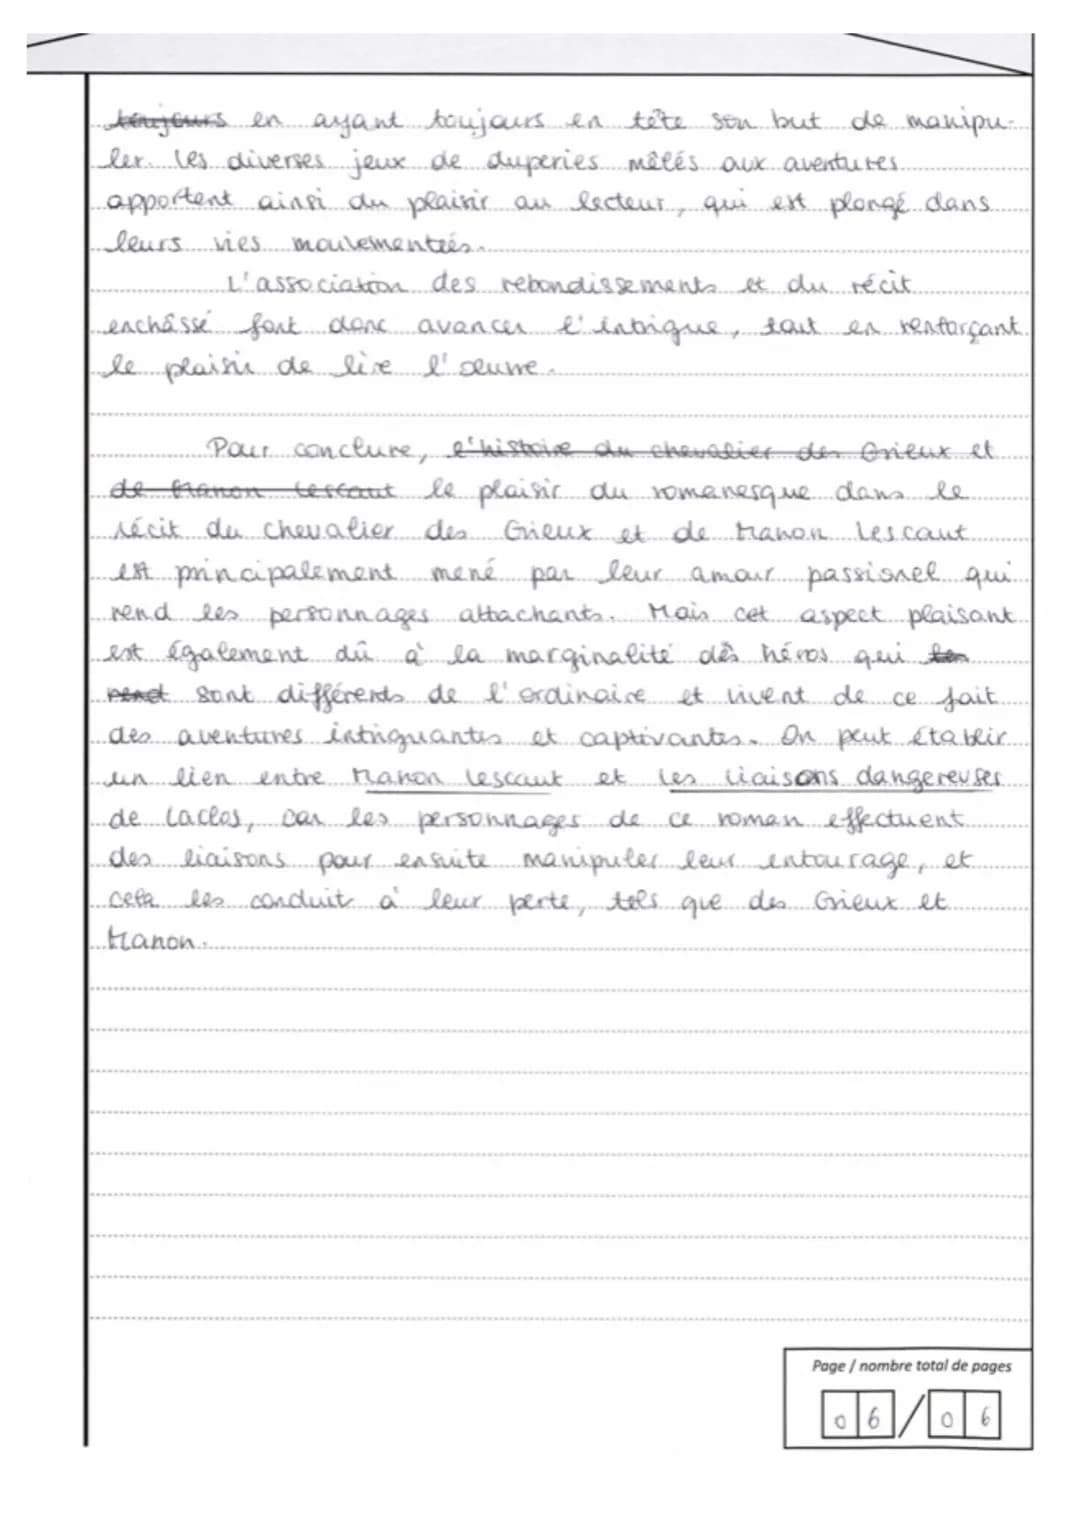 toujours en ayant toujours en tête son but de manipu-
ler. Les diverses jeux de duperies mêlés aux aventures
apportent ainsi du plaisir au lecteur, qui est plongé dans
leurs vies mouvementées.
L'association des rebondissements et du récit
enchâssé font donc avancer l'intrigue, tout en renforçant
le plaisir de lire l'œuvre.
Pour conclure, l'histoire du chevalier des Grieux et
de Manon Lescaut le plaisir du romanesque dans le
récit du Chevalier des Grieux et de Manon Lescaut
est principalement mené par leur amour passionel qui
rend les personnages attachants. Mais cet aspect plaisant
est également dû à la marginalité dès héros qui les
rend sont différents de l'ordinaire et vivent de ce fait
des aventures intriguantes et captivantes. On peut établir
un lien entre Manon Lescaut et Les Liaisons dangereuses
de Laclos, car les personnages de ce roman effectuent
des liaisons pour ensuite manipuler leur entourage, et
cela les conduit à leur perte, tels que des Grieux et
Manon.
Page / nombre total de pages
06 / 06